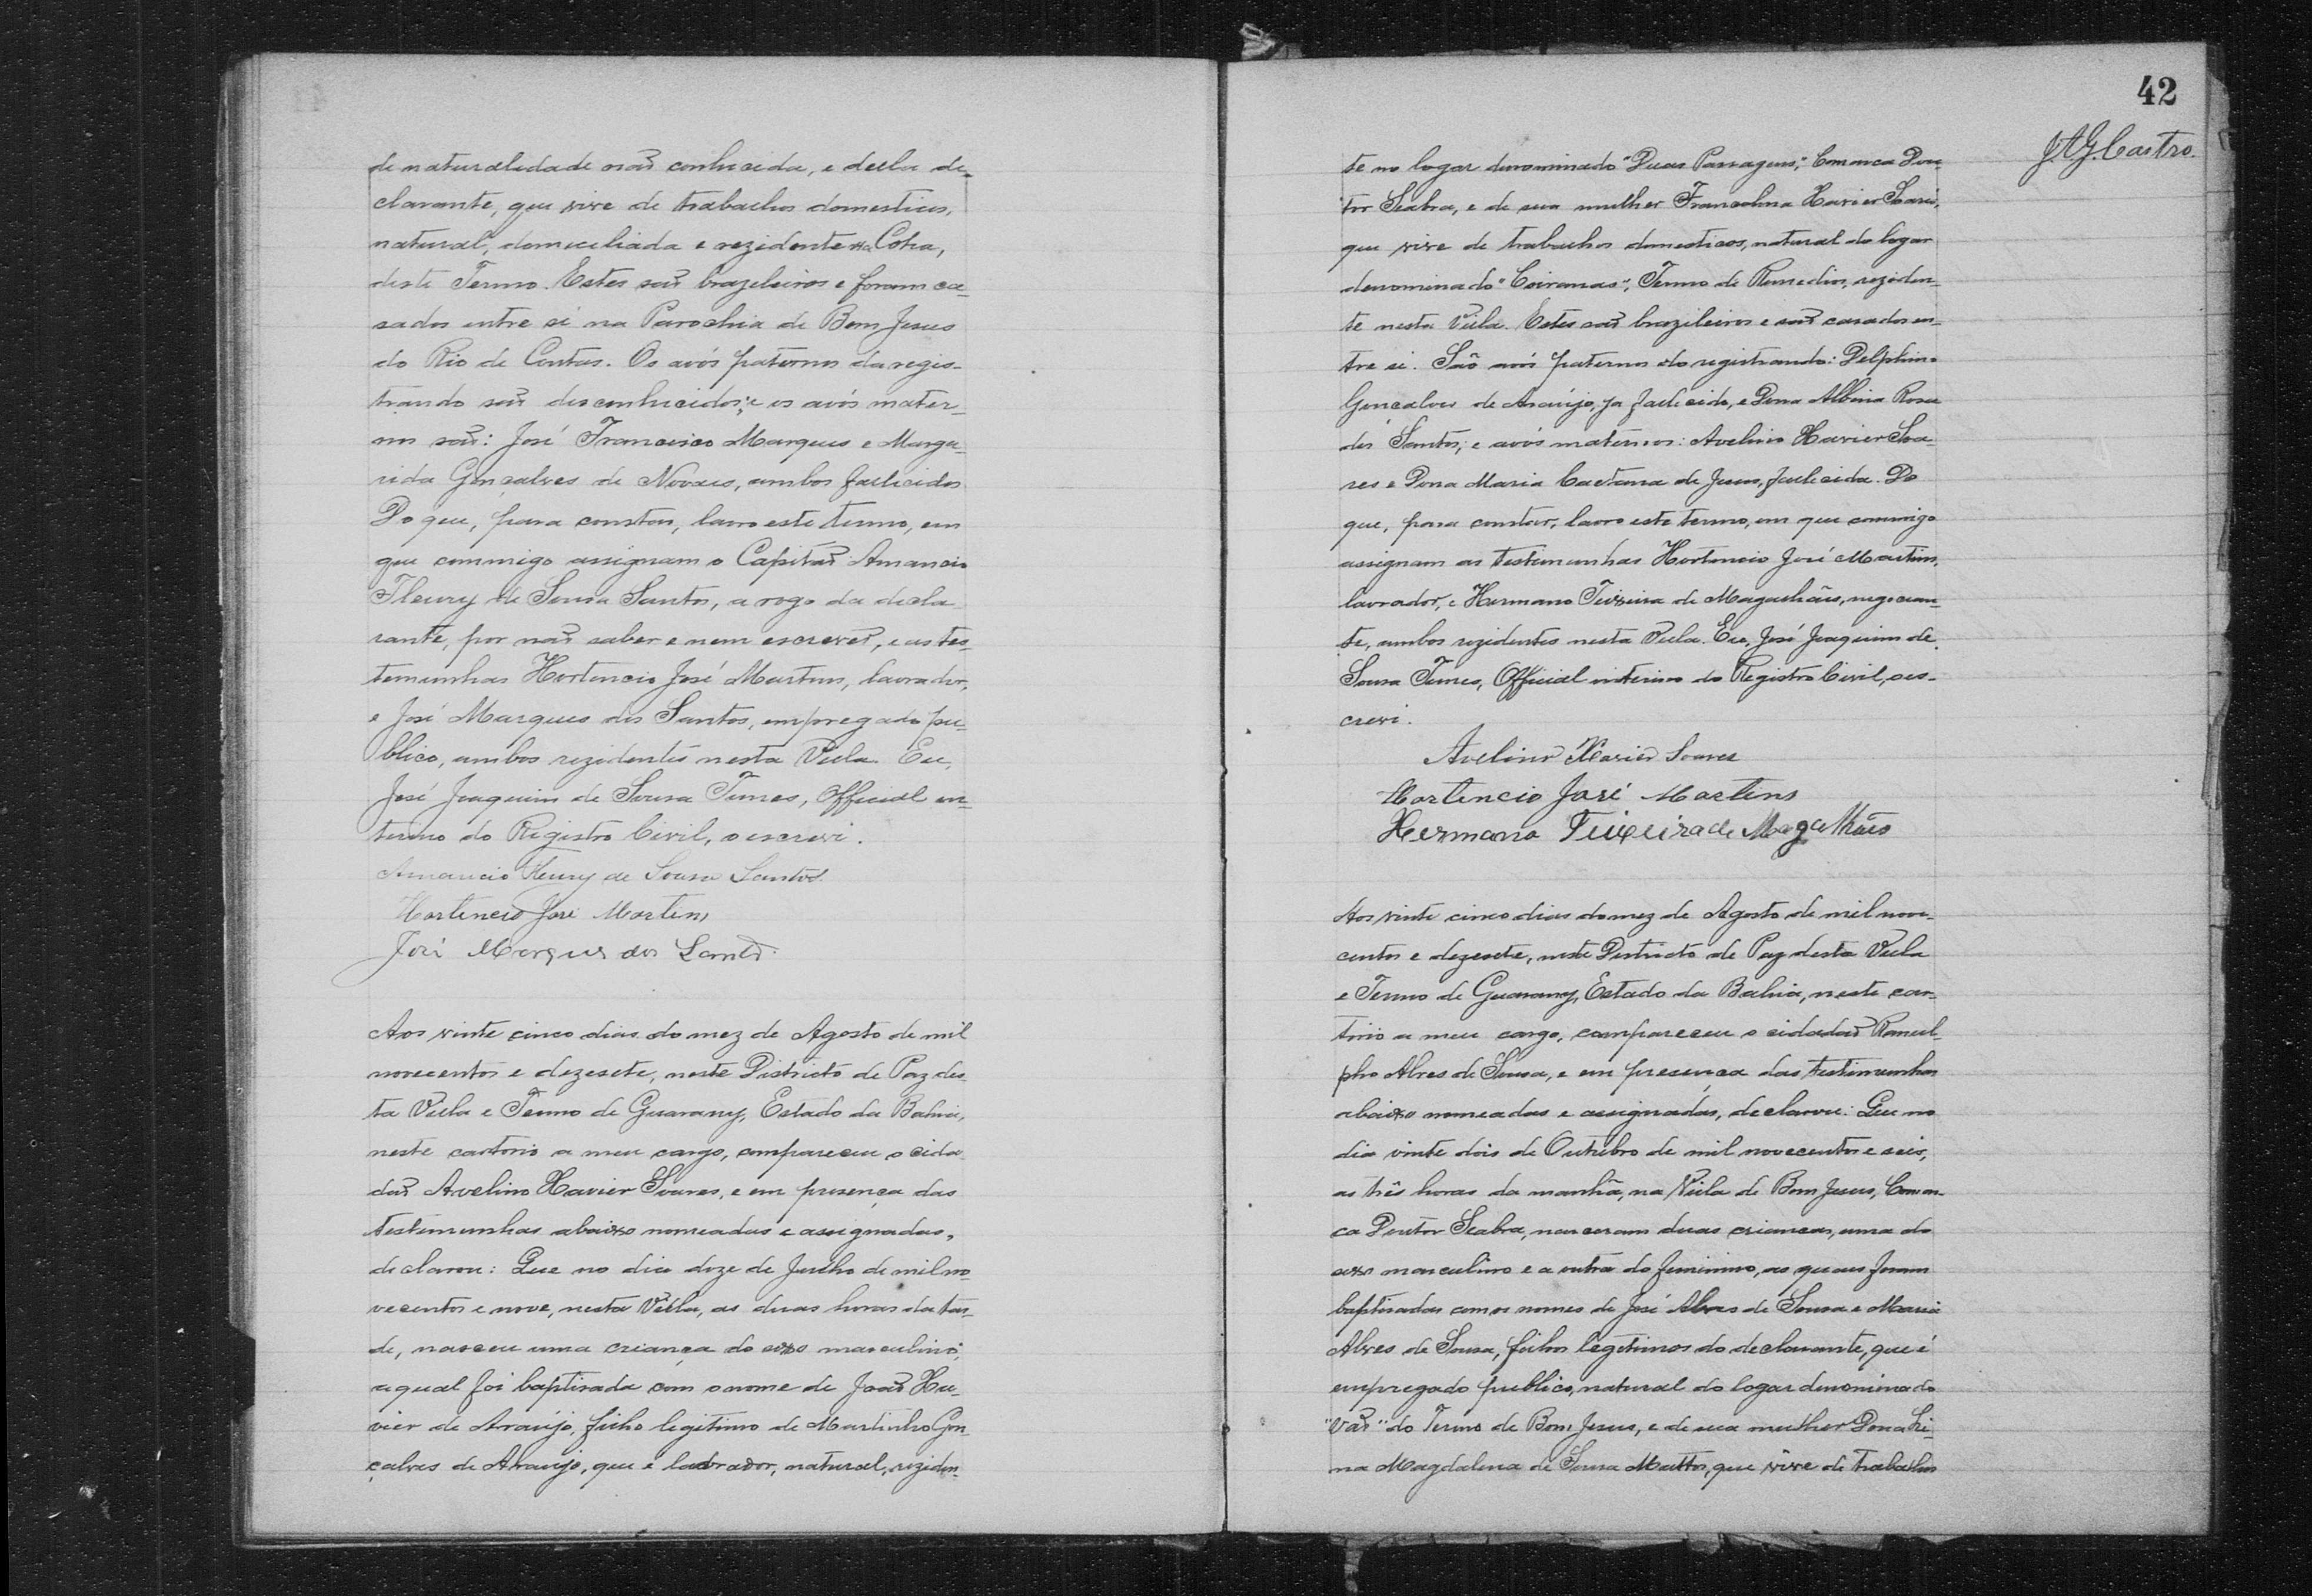 de naturalidade não conhecida, e della de-
clarante, que vive de trabalhos domesticos,
natural, domiciliada e rezidente na Cotia,
deste Termo. Estes são brazileiros e foram ca-
sados entre si na Parochia de Bom Jesus
do Rio de Contas. Os avós paternos da regis-
trando são desconhicidos; e os avós mater-
nos são: José Francisco Marques e Marga-
rida Gonçalves de Novaes, ambos fallicidos
Do que, para constar, lavro este termo, em
que commigo assignam o Capitão Amancio
Fleury de Sousa Santos, a rogo da decla
rante, por não saber e nem escrever, e as tes-
temunhas Hortencio José Martins, lavrador,
e José Marques dos Santos, empregado pu-
blico, ambos rezidentes nesta Villa. Eu,
José Joaquim de Sousa Tunes, Official in-
terino do Registro Civil, o escrevi.
Amancio Fleury de Sousa Santos
Hortencio José Martins
José Marques dos Santos
Aos vinte cinco dias do mez de Agosto de mil
novecentos e dezesete, neste Districto de Paz des-
ta Villa e Termo de Guarany, Estado da Bahia,
neste cartorio a meu cargo, compareceu o cida-
dão Avelino Xavier Soares, e em presença das
testimunhas abaixo nomeadas e assignadas,
declarou: Que no dia doze de Junho de mil no-
vecentos e nove, nesta Villa, as duas horas da tar-
de, nasceu uma criança do sexo masculino,
a qual foi baptisada com o nome de João Xa-
vier de Araújo, filho legitimo de Martinho Gon-
çalves de Araujo, que é lavrador, natural, reziden-
42
J.A.G. Castro.
te no logar denominado "Duas Passagens", Comarca Dou-
tor Seabra, e de sua mulher Francolina Xavier Soares,
que vive de trabalhos domesticos, natural do logar
denominado "Coiranas", Termo de Remedios, reziden-
te nesta Villa. Estes são brazileiros e são casados en-
tre si. São avós paternos do registrando: Delphino
Gonçalves de Araújo, ja fallicido, e Dona Albina Rosa
dos Santos; e avós maternos: Avelino Xavier Soa-
res e Dona Maria Caetana de Jesus, fallicida. Do
que, para constar, lavro este termo, em que commigo
assignam as testimunhas Hortencio José Martins,
lavrador, e Hermano Teixeira de Magalhães, negocian-
te, ambos rezidentes nesta Villa. Eu, José Joaquim de
Sousa Tunes, Official interino do Registro Civil, o es-
crevi.
Avelino Xavier Soares
Hortencio José Martins
Hermano Teixeira de Magalhães
Aos vinte cinco dias do mez de Agosto de mil nove-
centos e dezesete, neste Districto de Paz desta Villa
e Termo de Guarany, Estado da Bahia, neste car-
torio a meu cargo, compareceu o cidadão Ranul-
pho Alves de Sousa, e em presença das testimunhas
abaixo nomeadas e assignadas, declarou: Que no
dia vinte dois de Outubro de mil novecentos e seis,
as três horas da manhã, na Villa de Bom Jesus, Comar-
ca Doutor Seabra, nasceram duas crianças, uma do
sexo masculino e a outra do feminino, as quaes foram
baptisadas com os nomes de José Alves de Sousa e Maria
Alves de Sousa, filhos legitimos do declarante, que é
empregado publico, natural do logar denominado
"Vão" do Termo de Bom Jesus, e de sua mulher Dona Li-
na Magdalena de Sousa Mattos, que vive de trabalhos